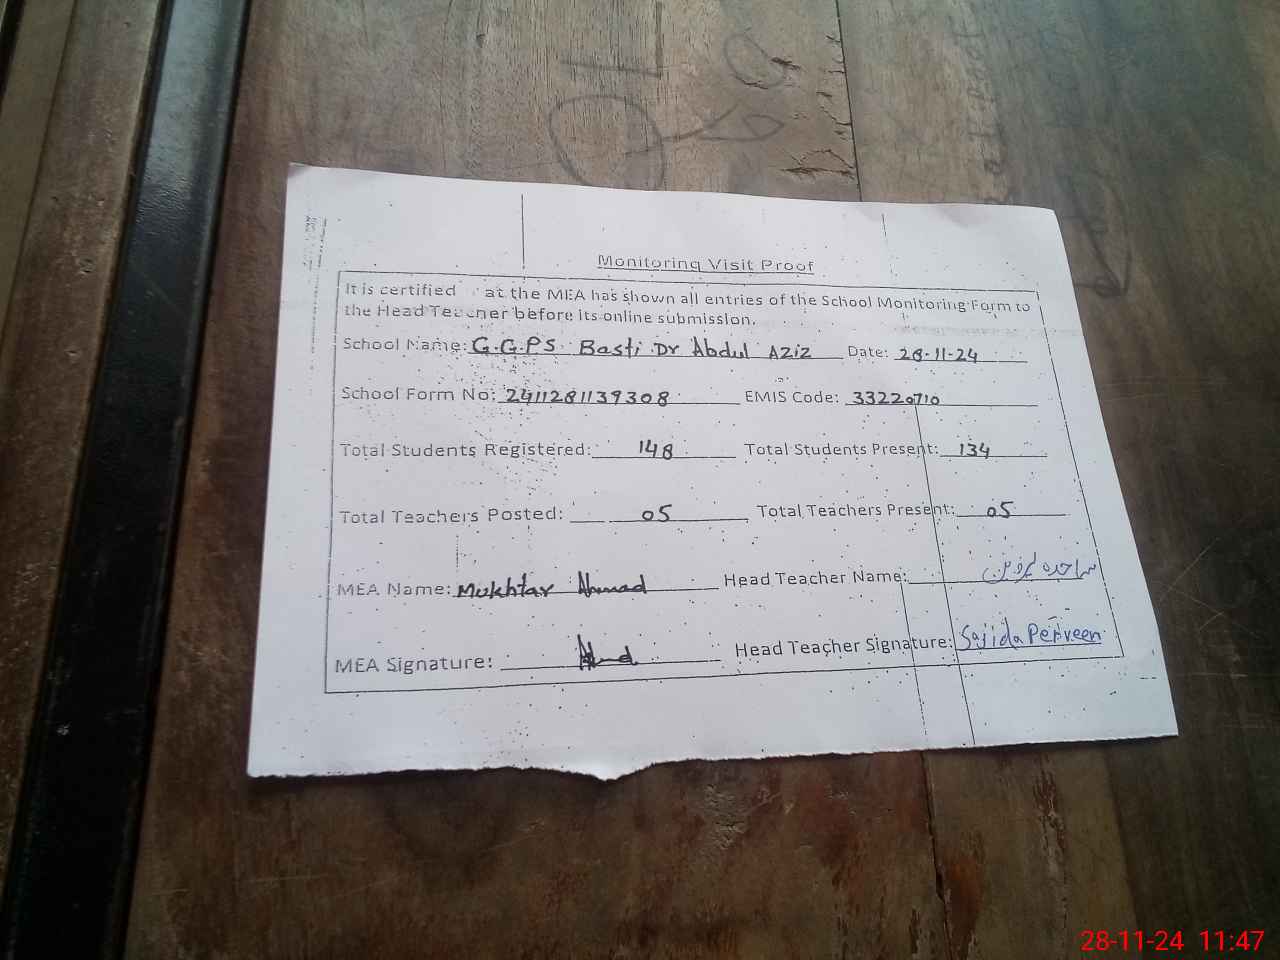 Monitoring Visit Proof
It is certified at the MEA has shown all entries of the School Monitoring Form to
the Head Teacher before its online submission.
School Name: G.G.P.S. Basti Dr Abdul Aziz Date: 28-11-24
School Form No: 2411281139308 EMIS Code: 33220710
Total Students Registered: 148 Total Students Present: 134
Total Teachers Posted: 05 Total Teachers Present: 05
MEA Name: Mukhtar Ahmad Head Teacher Name: ساجدہ پروین
MEA Signature: Head Teacher Signature: Sajida Perveen
28-11-24 11:47